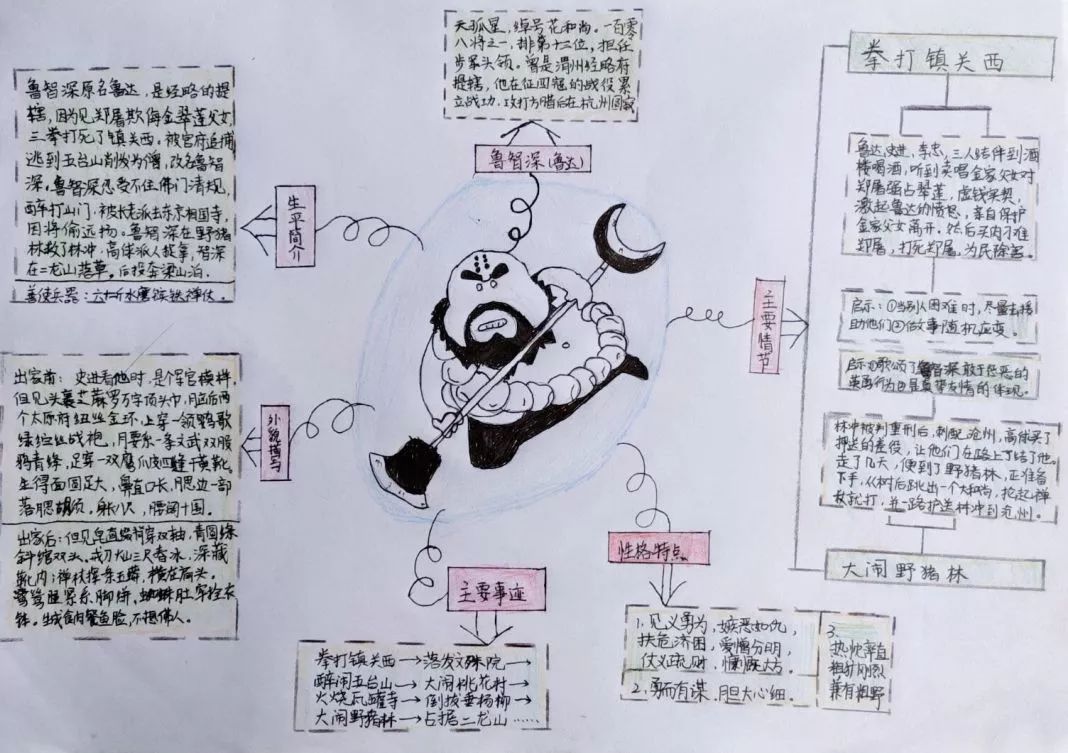 天孤星，绰号花和尚。一百零
八将之一，排第十三位，担任
步军头领。曾是渭州经略府
提辖，他在征四寇的战役累
立战功，攻打方腊后在杭州圆寂
鲁智深(鲁达)
鲁智深原名鲁达，是经略的提
辖，因为见郑屠欺侮金翠莲父女
三拳打死了镇关西。被官府追捕
逃到五台山削发为僧，改名鲁智
深。鲁智深忍受不住佛门清规，
醉打山门，被长老派去东京相国寺，
因将偷远扬。鲁智深在野猪
林救了林冲，高俅派人捉拿，智深
在二龙山落草。后投奔梁山泊。
善使兵器：六十二斤水磨镔铁禅杖。
生平简介
出家前：史进看他时，是个军官模样。
但见头裹芝麻罗万字顶头巾，脑后两
个太原府纽丝金环，上穿一领鹦哥
绿纻丝战袍，腰系一条文武双股
鸦青绦，足穿一双鹰爪皮四缝干黄靴。
生得面圆耳大，鼻直口长，腮边一部
落腮胡须，身长八尺，腰阔十围。
出家后：但见皂直裰背穿双袖，青圆绦
斜绾双头，戒刀灿三尺春冰，深藏
鞘内；禅杖挥一条玉蟒，横在肩头。
鹭鸶腿紧系脚絣，蜘蛛肚牢拴衣
钵。生成食肉餐鱼脸，不想佛人。
外貌描写
主要事迹
拳打镇关西→落发文殊院→
醉闹五台山→大闹桃花村→
火烧瓦罐寺→倒拔垂杨柳→
大闹野猪林→占据二龙山……
性格特点
1，见义勇为，嫉恶如仇，
扶危济困，爱憎分明，
仗义疏财，慷慨大方。
2，勇而有谋，胆大心细。
3，
热忱率直
粗犷刚烈
兼有粗野
主要情节
拳打镇关西
鲁达，史进，李忠，三人结伴到酒
楼喝酒，听到卖唱金家父女对
郑屠强占翠莲，虚钱实契，
激起鲁达的愤怒，亲自保护
金家父女离开，然后买肉刁难
郑屠，打死郑屠，为民除害。
启示：①当别人困难时，尽量去援
助他们②做事随机应变。
启示：歌颂了鲁智深敢于惩恶的
英勇行为也是真挚友情的体现。
林冲被判重刑后，刺配沧州，高俅买了
押送的差役，让他们在路上了结了他。
走了几天，便到了野猪林，正准备
下手，从树后跳出一个大和尚，抡起禅
杖就打，并一路护送林冲到沧州。
大闹野猪林